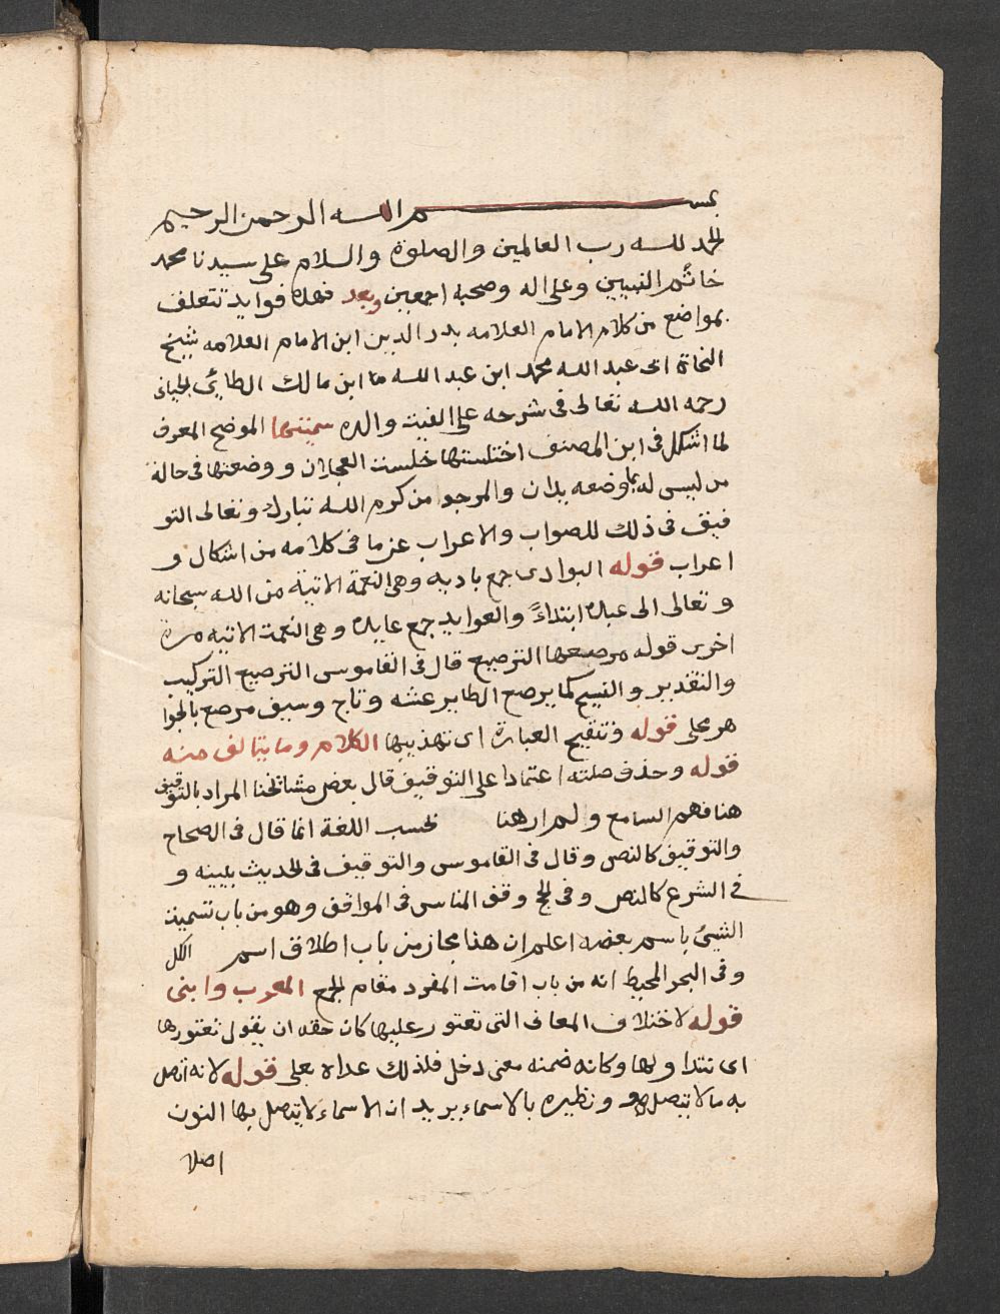 بسم الله الرحمن الرحيم
الحمد لله رب العالمين والصلوة والسلام على سيدنا محمد
خاتم النبيين وعلى اله وصحبه اجمعين وبعد فهذه فوايد تتعلف
بمواضع من كلام الامام العلامه بدر الدين ابن الامام العلامه شيخ
النحاة ابى عبد الله محمد ابن عبد الله ابن مالك الطائى الجيانى
رحمه الله تعالى فى شرحه على الفيت والده سميتها الموضح المعرف
لما اشكل فى ابن المصنف اختلستها خلست العجلان ووضعتها فى حالة
من ليس له بما وضعه يدان والمرجوا من كرم الله تبارك وتعالى التو
فيق فى ذلك للصواب والاعراب عن ما فى كلامه من اشكال و
اعراب قوله البوادى جمع باديه وهى النعمة الاتية من الله سبحانه
وتعالى الى عبده ابتداءً والعوايد جمع عايده وهى النعمت الاتيه مرة
اخرى قوله مرصعها الترصيع قال فى القاموس الترصيع التركيب
والتقدير والنسيج كما يرصع الطاير عشه وتاج وسيف مرصع بالجوا
هر محلى قوله وتنقيح العبارة اى تهذيبها الكلام وما يتالف منه
قوله وحذف صلته اعتمادا على التوقيف قال بعض مشائخنا المراد بالتوقيف
هنا فهم السامع ولم ار هنا بحسب اللغة انما قال فى الصحاح
والتوقيف كالنص وقال فى القاموس والتوقيف فى الحديث بيينه و
فى الشرع كالنص وفى الحج وقف الناس فى المواقف وهو من باب تسميت
الشيئ باسم بعضه اعلم ان هذا مجاز من باب اطلاق اسم الكل
وفى البحر المحيط انه من باب اقامت المفرد مقام الجمع المعرب وابنى
قوله لاختلاف المعانى التى تعتور عليها كان حقه ان يقول تعتورها
اى تتداولها وكانه ضمنه معنى دخل فلذلك عداه بعلى قوله لانه اتصل
به ما لا يتصل هو ونظيره بالاسماء يريد ان الاسماء لا يتصل بها النون
اصلا